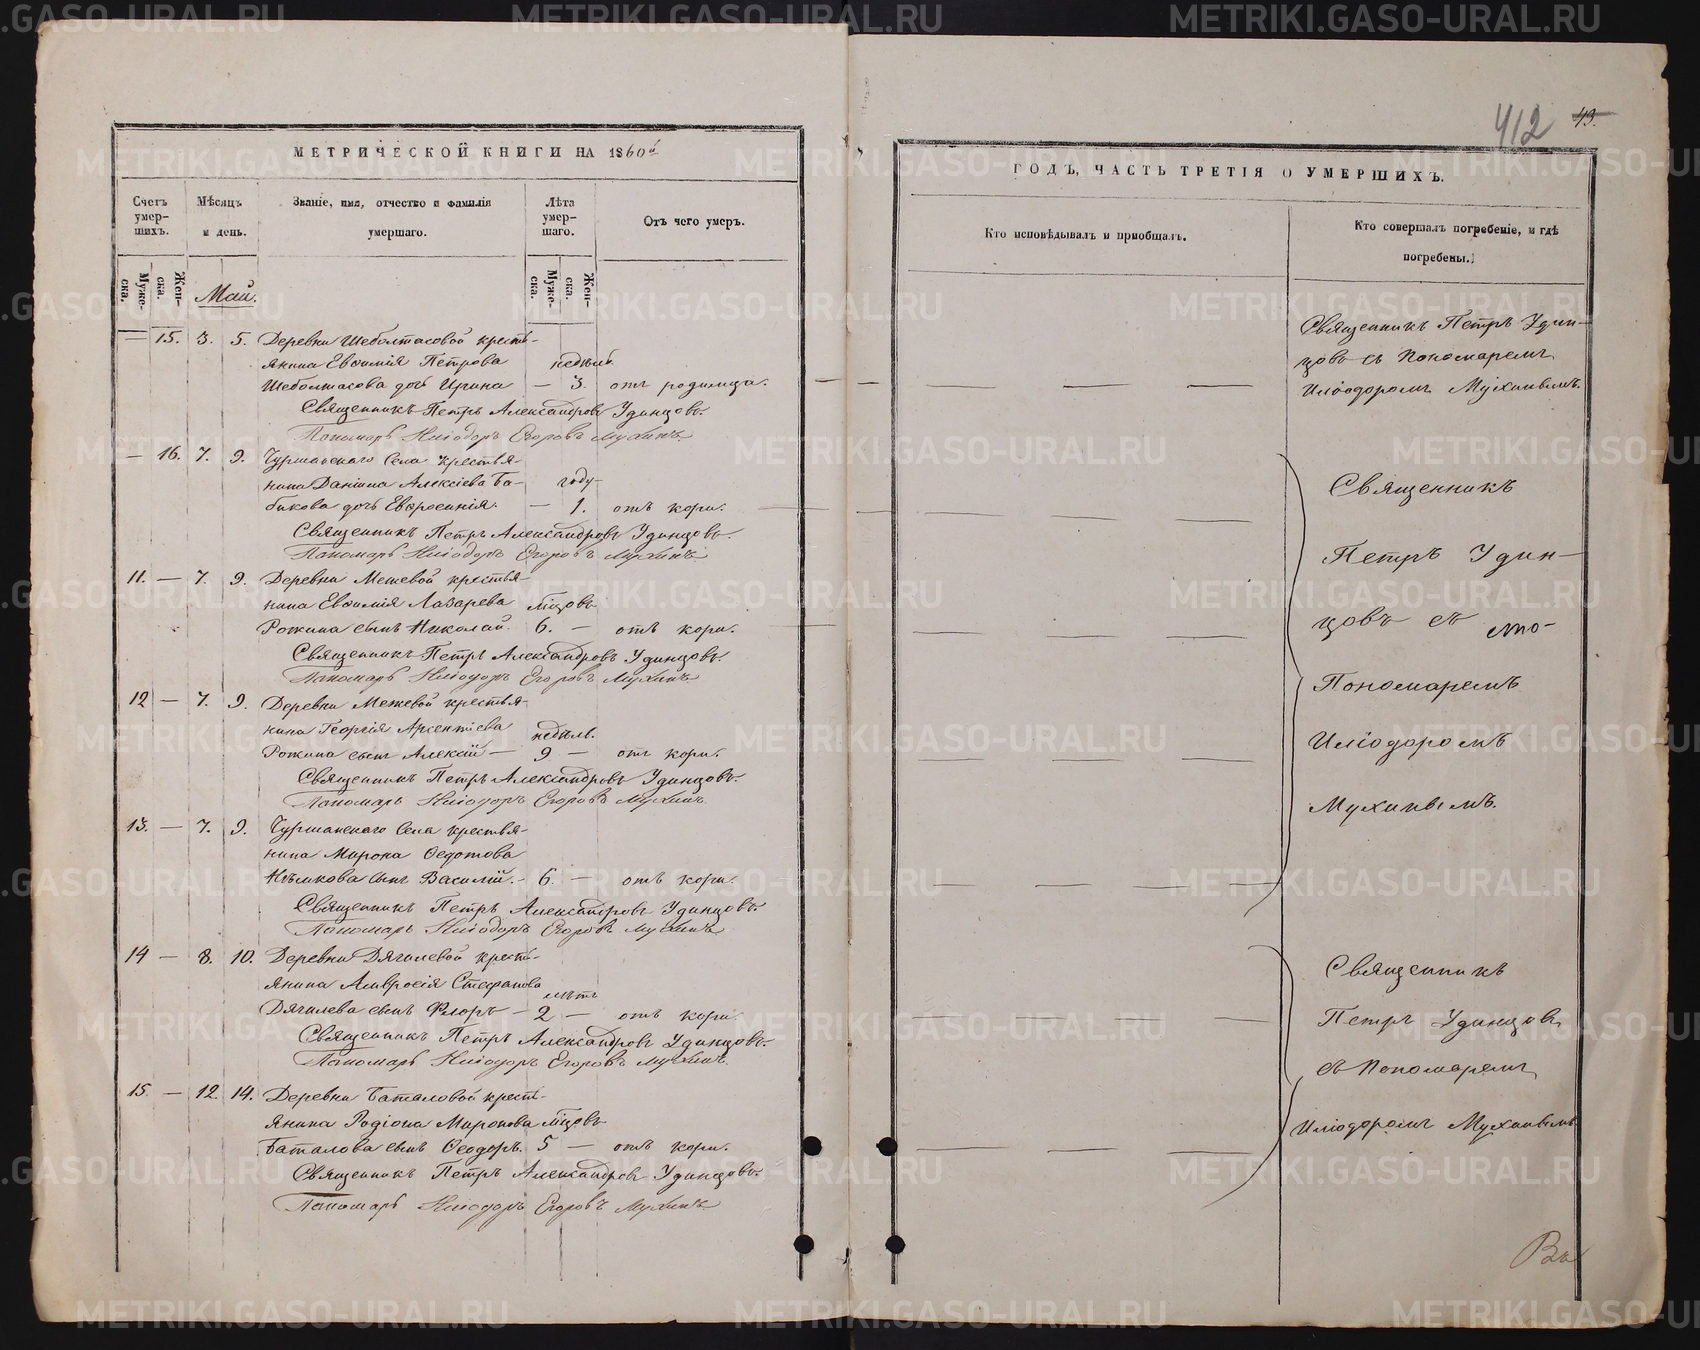 МЕТРИЧЕСКОЙ КНИГИ НА 1860й
Счетъ умер-шихъ.
Мѣсяцъ и день.
Званіе, имя, отчество и фамилія умершаго.
Лѣта умер-шаго.
Отъ чего умеръ.
Муже-ска.
Жен-ска.
Май.
Муже-ска.
Жен-ска.
— 15. 3. 5. Деревни Шеболтасовой кресть-
янина Евѳимія Петрова недѣль
Шеболтасова дочь Ирина — 3. отъ родимца.
Священникъ Петръ Александровъ Удинцовъ.
Пономарь Иліодоръ Егоровъ Мухинъ.
— 16. 7. 9. Чурманскаго Села крестья-
нина Даніила Алексіева Ба- году
бикова дочь Евфросинія. — 1. отъ кори.
Священникъ Петръ Александровъ Удинцовъ.
Пономарь Иліодоръ Егоровъ Мухинъ.
11. — 7. 9. Деревни Межевой крестья-
нина Евѳимія Лазарева мѣсцовъ
Рожина сынъ Николай. 6. — отъ кори.
Священникъ Петръ Александровъ Удинцовъ.
Пономарь Иліодоръ Егоровъ Мухинъ.
12 — 7. 9. Деревни Межевой крестья-
нина Георгія Арсентіева недѣль.
Рожина сынъ Алексій — 9 — отъ кори.
Священникъ Петръ Александровъ Удинцовъ.
Пономарь Иліодоръ Егоровъ Мухинъ.
13. — 7. 9. Чурманскаго Села крестья-
нина Мирона Ѳедотова
сынъ Василій. — 6. — отъ кори.
Священникъ Петръ Александровъ Удинцовъ.
Пономарь Иліодоръ Егоровъ Мухинъ
14 — 8. 10. Деревни Дягилевой кресть-
янина Амвросія Стефанова лѣтъ
Дягилева сынъ Флоръ — 2 — отъ кори.
Священникъ Петръ Александровъ Удинцовъ.
Пономарь Иліодоръ Егоровъ Мухинъ.
15. — 12. 14. Деревни Баталовой кресть-
янина Родіона Миронова мѣсцовъ
Баталова сынъ Ѳеодоръ. 5 — отъ кори.
Священникъ Петръ Александровъ Удинцовъ.
Пономарь Иліодоръ Егоровъ Мухинъ
412 43.
ГОДЪ, ЧАСТЬ ТРЕТІЯ О УМЕРШИХЪ.
Кто исповѣдывалъ и пріобщалъ.
Кто совершалъ погребеніе, и гдѣ
погребены.
Священникъ Петръ Удин-
цовъ съ Пономаремъ
Иліодоромъ Мухинымъ.
Священникъ
Петръ Удин-
цовъ съ
Пономаремъ
Иліодоромъ
Мухинымъ.
Священникъ
Петръ Удинцовъ
съ Пономаремъ
Иліодоромъ Мухинымъ
Въ
METRIKI.GASO-URAL.RU